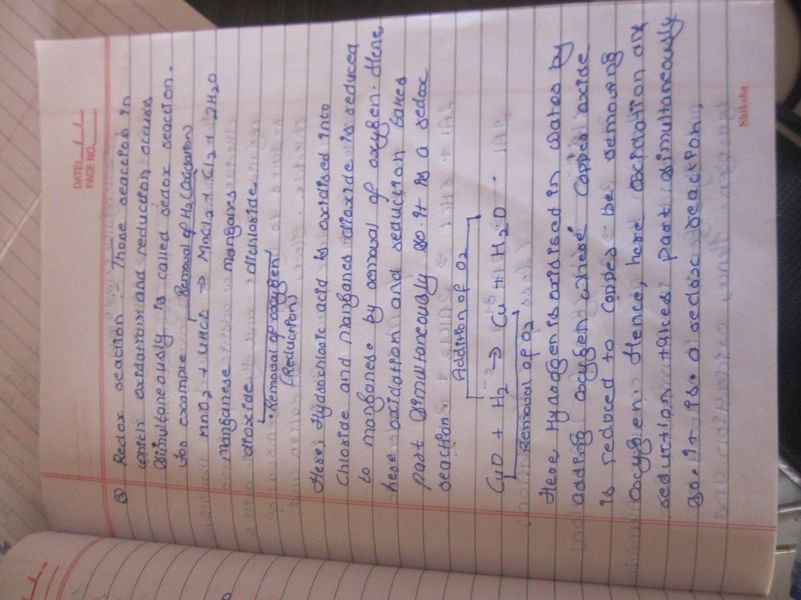 DATE: / /
PAGE NO.
② Redox reaction :- Those reaction in
which oxidation and reduction occurs
Simultaneously is called redox reaction.
for example Removal of H₂ (Oxidation)
MnO₂ + 4HCl → MnCl₂ + Cl₂ + 2H₂O
Manganese manganes
dioxide dichloride
Removal of oxygen
(Reduction)
Here, Hydrochloric acid is oxidised into
Chloride and manganes dioxide is reduced
to manganese by removal of oxygen. Hence
here oxidation and reduction takes
part simultaneously so it is a redox
reaction.
Addition of O₂
CuO + H₂ → Cu + H₂O.
Removal of O₂
Here, Hydrogen is oxidised in water by
adding oxygen where Copper oxide
is reduced to Copper be removing
oxygen. Hence, here oxidation are
reduction takes part simultaneously
so. it is a redox reaction.
Shiksha